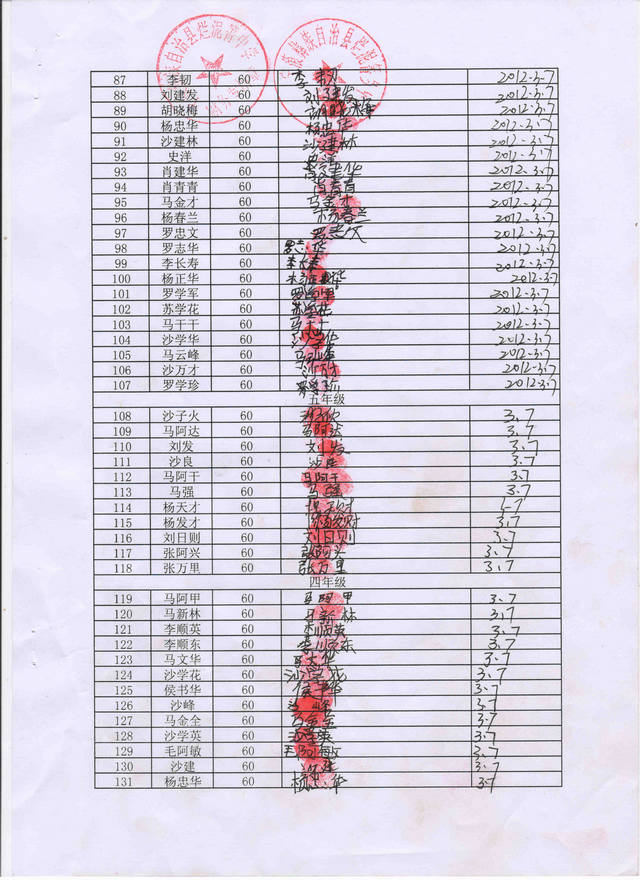 族自治县烂泥箐中学
族自治县烂泥箐乡
87 李韧 60 李韧 2012.3.7
88 刘建发 60 刘建发 2012.3.7
89 胡晓梅 60 胡晓梅 2012.3.7
90 杨忠华 60 杨忠华 2012.3.7
91 沙建林 60 沙建林 2012.3.7
92 史洋 60 史洋 2012.3.7
93 肖建华 60 肖建华 2012.3.7
94 肖青青 60 肖青青 2012.3.7
95 马金才 60 马金才 2012.3.7
96 杨春兰 60 杨春兰 2012.3.7
97 罗忠文 60 罗忠文 2012.3.7
98 罗志华 60 罗志华 2012.3.7
99 李长寿 60 李长寿 2012.3.7
100 杨正华 60 杨正华 2012.3.7
101 罗学军 60 罗学军 2012.3.7
102 苏学花 60 苏学花 2012.3.7
103 马干干 60 马干干 2012.3.7
104 沙学华 60 沙学华 2012.3.7
105 马云峰 60 马云峰 2012.3.7
106 沙万才 60 沙万才 2012.3.7
107 罗学珍 60 罗学珍 2012.3.7
五年级
108 沙子火 60 3.7
109 马阿达 60 马阿达 3.7
110 刘发 60 刘发 3.7
111 沙良 60 沙良 3.7
112 马阿干 60 马阿干 3.7
113 马强 60 马强 3.7
114 杨天才 60 3.7
115 杨发才 60 杨发财 3.7
116 刘日则 60 刘日则 3.7
117 张阿兴 60 张阿兴 3.7
118 张万里 60 张万里 3.7
四年级
119 马阿甲 60 马阿甲 3.7
120 马新林 60 马新林 3.7
121 李顺英 60 李顺英 3.7
122 李顺东 60 李顺东 3.7
123 马文华 60 马文华 3.7
124 沙学花 60 沙学花 3.7
125 侯书华 60 侯书华 3.7
126 沙峰 60 沙峰 3.7
127 马金全 60 马金全 3.7
128 沙学英 60 沙学英 3.7
129 毛阿敏 60 毛阿敏 3.7
130 沙建 60 沙建 3.7
131 杨忠华 60 杨忠华 3.7